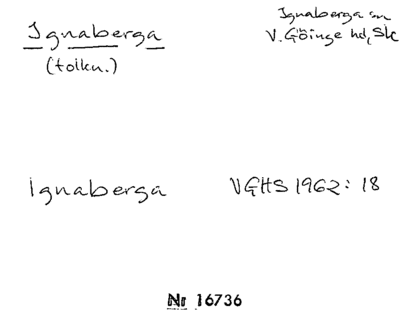 Ignaberga
(tolkn.)
Ignaberga sn
V. Göinge hd, Sk
Ignaberga
VGHS 1962: 18
Nr 16736